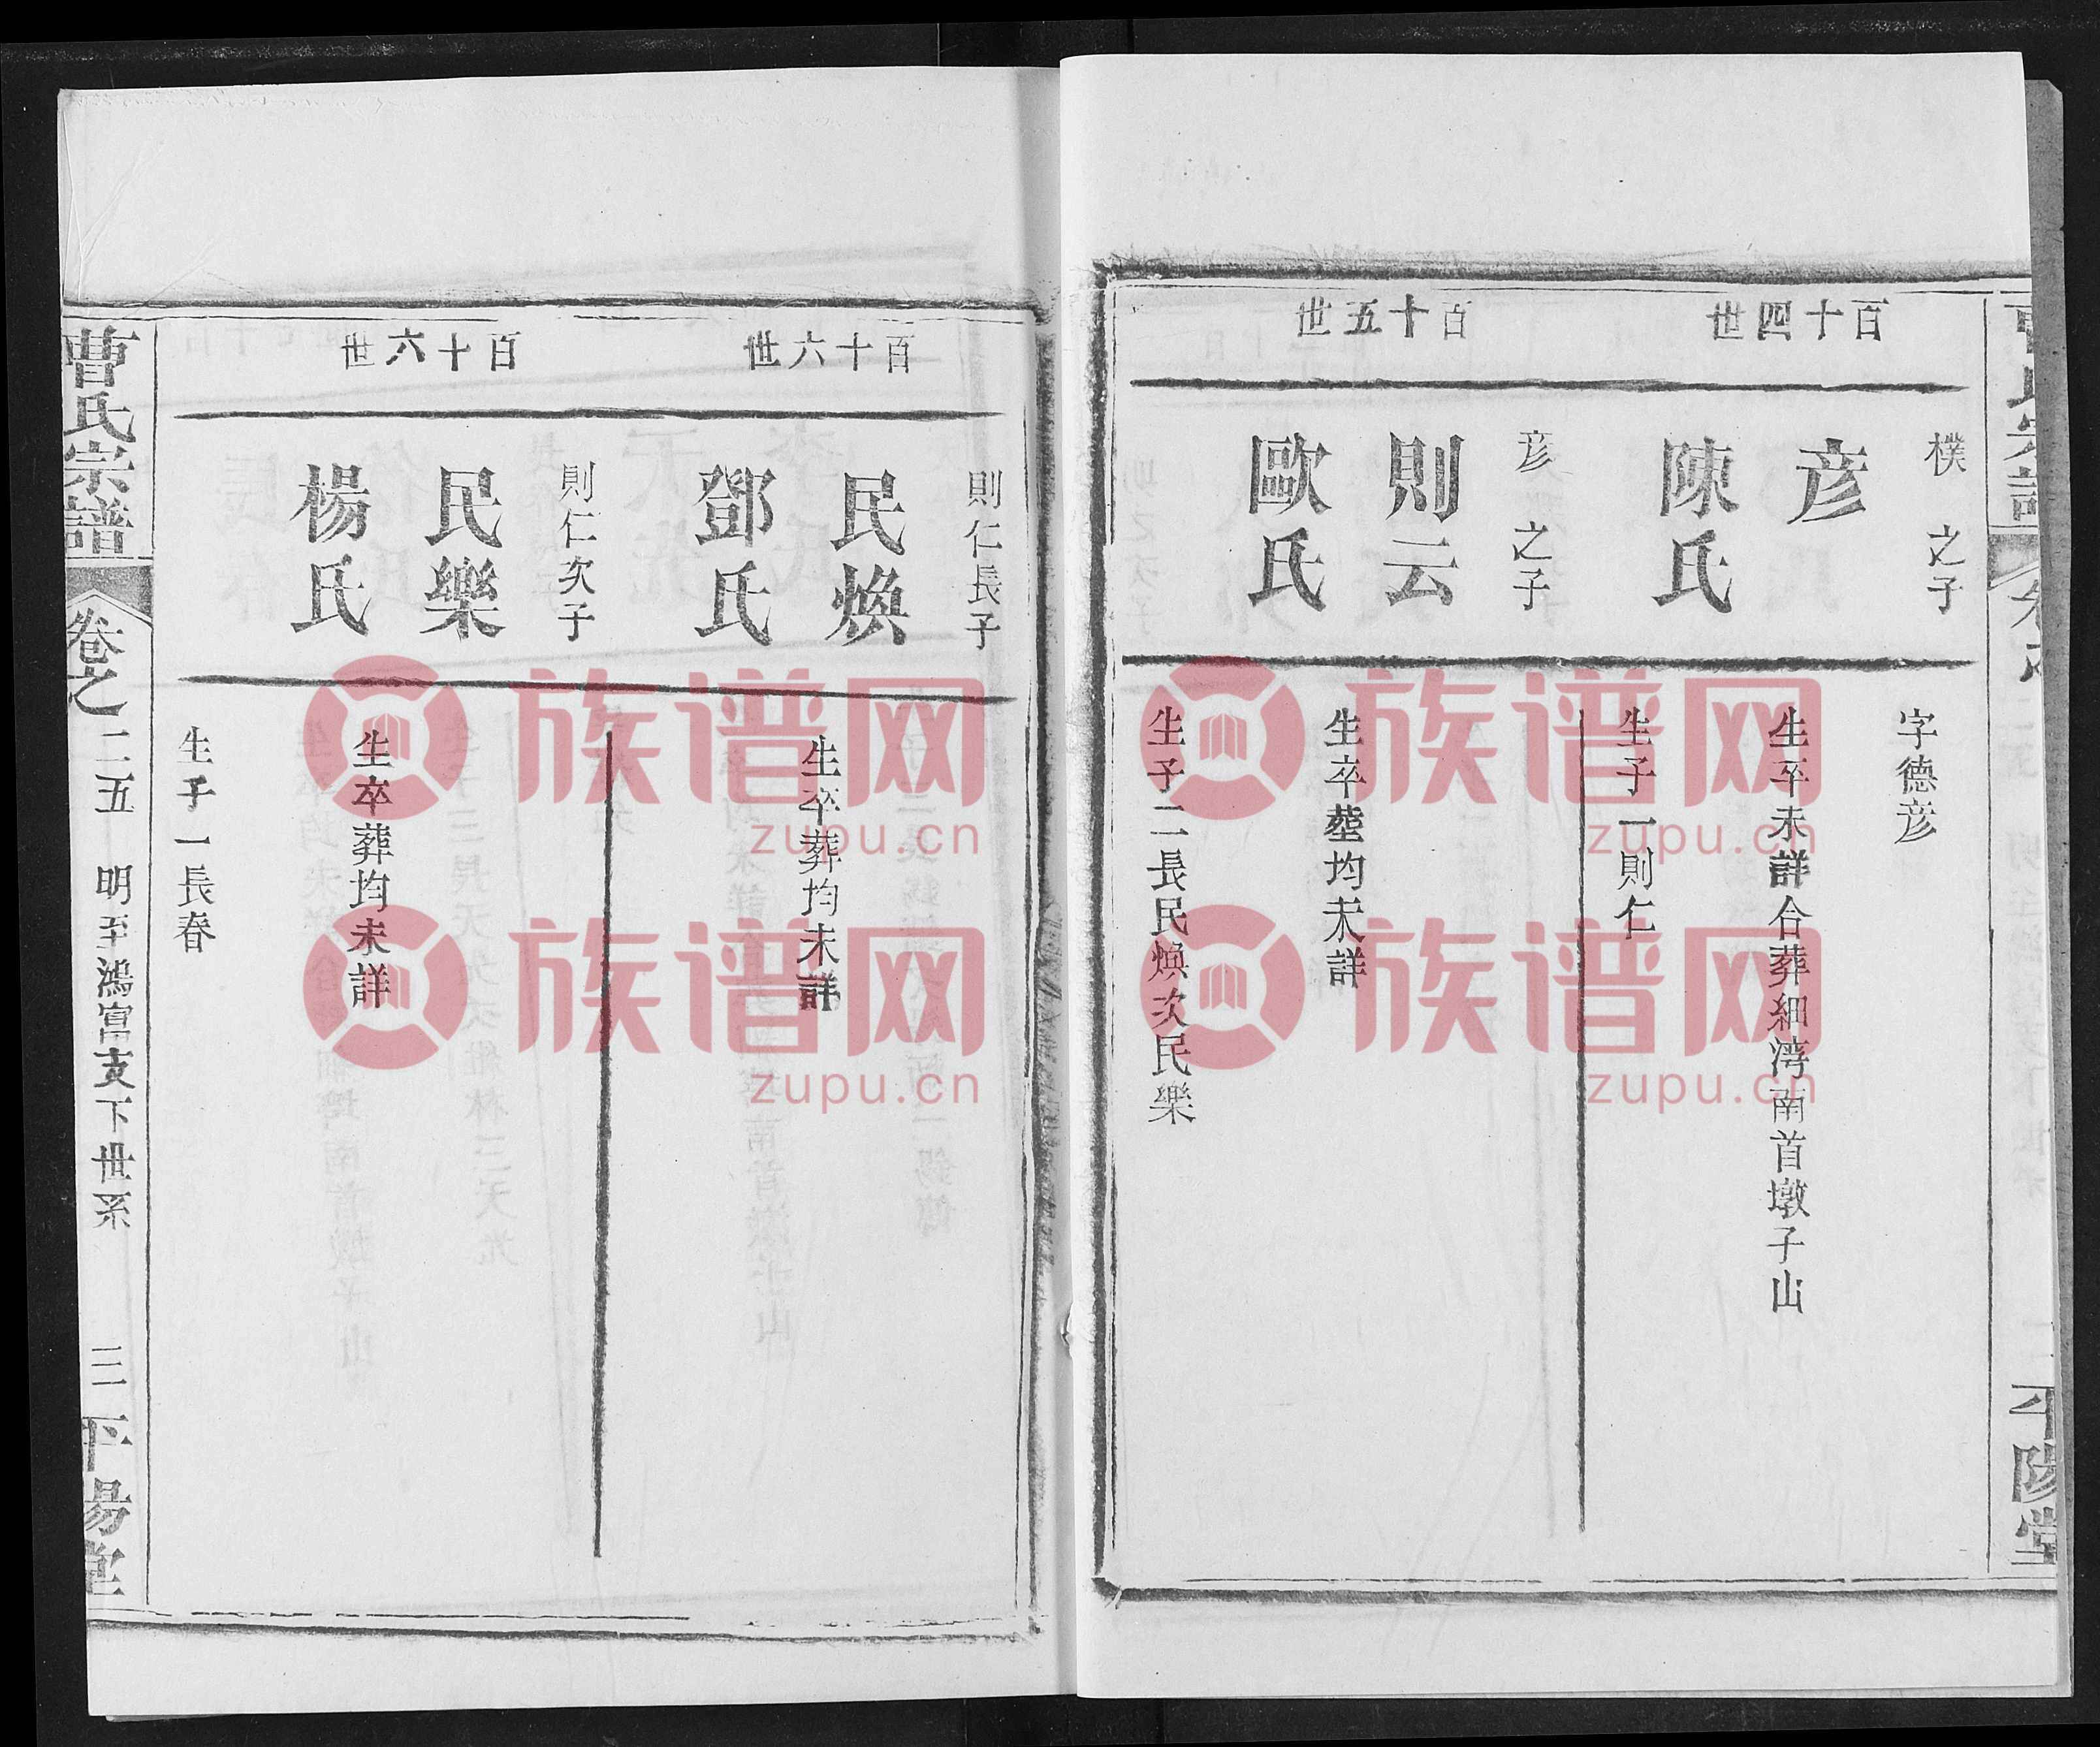 百十四世
樸之子
彦
陳氏
字德彦
生卒未詳合葬細湾南首墩子山
生子一則仁
百十五世
彦之子
則云
歐氏
生卒塟均未詳
生子二長民煥次民樂
平陽堂
百十六世
則仁長子
民煥
鄧氏
生卒葬均未詳
百十六世
則仁次子
民樂
楊氏
生卒葬均未詳
生子一長春
曹氏宗譜
卷之二五
明至鴻富支下世系
三
平陽堂
族谱网
zupu.cn
族谱网
zupu.cn
族谱网
zupu.cn
族谱网
zupu.cn